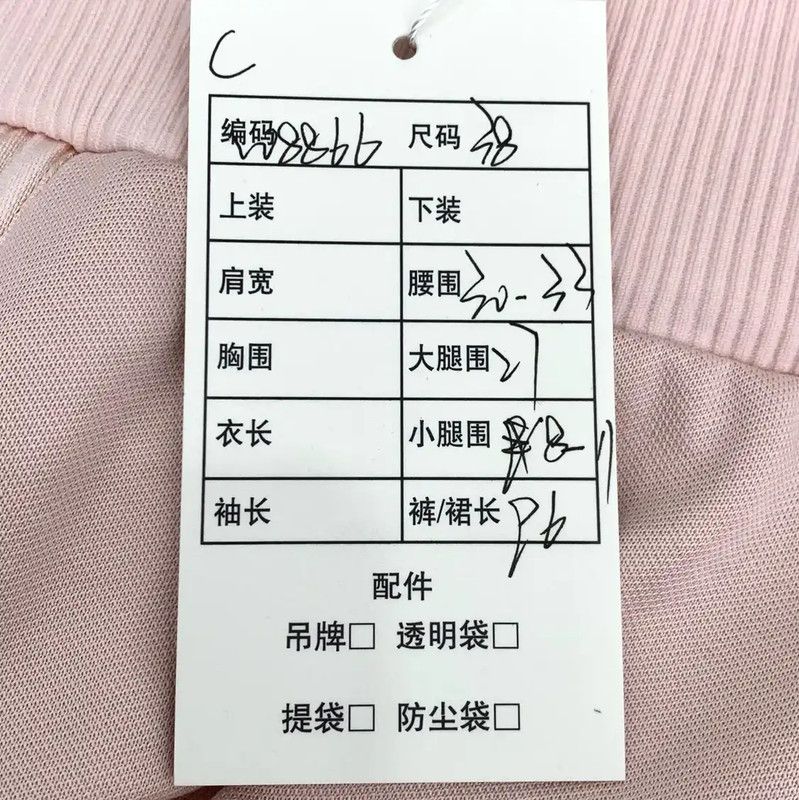 C
编码 尺码 38
上装 下装
肩宽 腰围 30-33
胸围 大腿围 27
衣长 小腿围
袖长 裤/裙长 96
配件
吊牌□ 透明袋□
提袋□ 防尘袋□